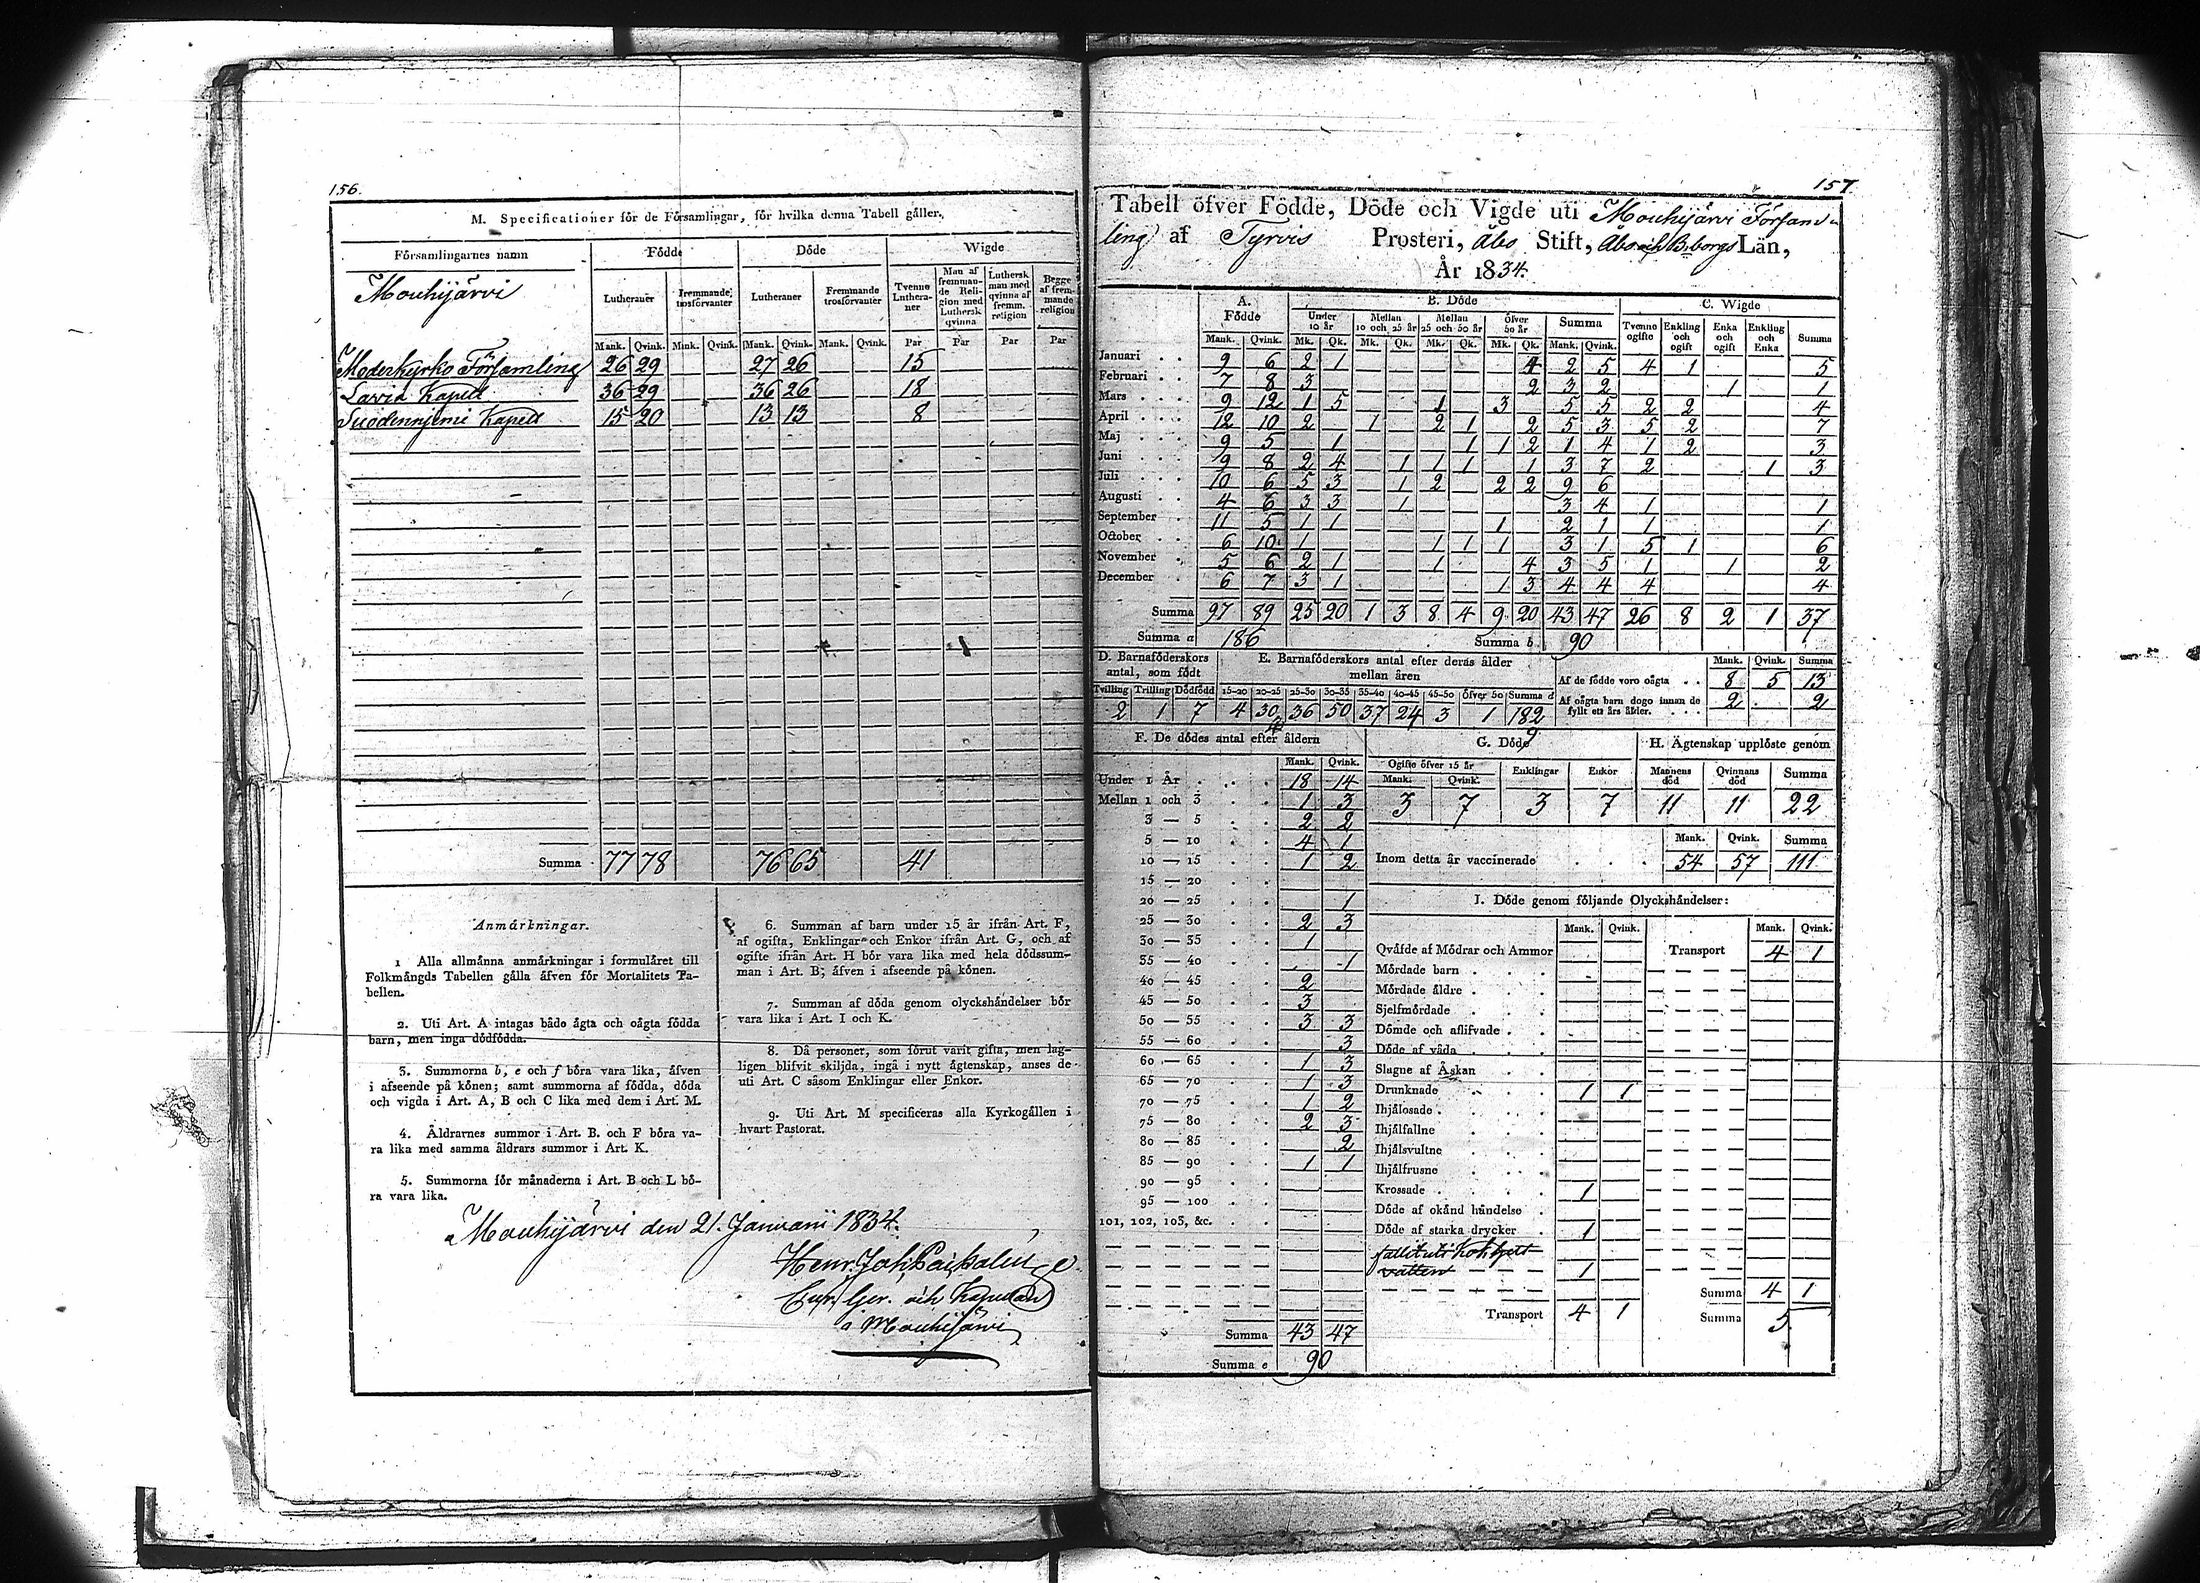 156.
M. Specificationer för de Församlingar, för hvilka denna Tabell gäller.
Församlingarnes namn Födde Döde Wigde
Mouhijärvi
Lutherauer Fremmande trosförvanter Lutheraner Fremmande trosförvanter Tvenne Lutheraner Man af fremmande Religion med Luthersk qvinna Luthersk man med qvinna af fremm. religion Begge af fremmande religion
Mank. Qvink. Mnk. Qvink. Mank. Qvink. Mank. Qvink. Par Par Par Par
Moderkyrko Församling 26 29 27 26 15
Lavia Kapell 36 29 36 26 18
Suodenniemi Kapell 15 20 13 13 8
Summa 77 78 76 65 41
Anmärkningar.
1 Alla allmänna anmärkningar i formuläret till
Folkmängds Tabellen gälla äfven för Mortalitets Ta-
bellen.
2. Uti Art. A intagas både ägta och oägta födda
barn, men inga dödfödda.
3. Summorna b, e och f böra vara lika, äfven
i afseende på könen; samt summorna af födda, döda
och vigda i Art. A, B och C lika med dem i Art. M.
4. Åldrarnes summor i Art. B. och F böra va-
ra lika med samma åldrars summor i Art. K.
5. Summorna för månaderna i Art. B och L bö-
ra vara lika.
6. Summan af barn under 15 år ifrån Art. F,
af ogifta, Enklingar och Enkor ifrån Art. G, och af
ogifte ifrån Art. H bör vara lika med hela dödssum-
man i Art. B; äfven i afseende på könen.
7. Summan af döda genom olyckshändelser bör
vara lika i Art. I och K.
8. Då personer, som förut varit gifta, men lag-
ligen blifvit skiljda, ingå i nytt ägtenskap, anses de
uti Art. C såsom Enklingar eller Enkor.
9. Uti Art. M specificeras alla Kyrkogällen i
hvart Pastorat.
Mouhijärvi den 21. Januarii 1834.
Henr. Joh.
och Kapellan
i Mouhijärvi
157.
Tabell öfver Födde, Döde och Vigde uti Mouhijärvi Försam
ling af Tyrvis Prosteri, Åbo Stift, Åbo och B.borgs Län,
År 1834.
A. Födde B. Döde C. Wigde
Under 10 år Mellan 10 och 25 år Mellan 25 och 50 år Öfver 50 år Summa Tvenne ogifte Enkling och ogift Enka och ogift Enkling och Enka Summa
Mank. Qvink. Mk. Qk. Mk. Qk. Mk. Qk. Mk. Qk. Mank. Qvink.
Januari 9 6 2 1 4 2 5 4 1 5
Februari 7 8 3 2 3 2 1 1
Mars 9 12 1 5 1 3 5 5 2 2 4
April 12 10 2 1 2 1 2 5 3 5 2 7
Maj 9 5 1 1 1 2 1 4 1 2 3
Juni 9 8 2 4 1 1 1 1 3 7 2 1 3
Juli 10 6 5 3 1 2 2 2 9 6
Augusti 4 6 3 3 1 3 4 1 1
September 11 5 1 1 1 2 1 1 1
October 6 10 1 1 1 1 3 1 5 1 6
November 5 6 2 1 1 4 3 5 1 1 2
December 6 7 3 1 1 3 4 4 4 4
Summa 97 89 25 20 1 3 8 4 9 20 43 47 26 8 2 1 37
Summa a 186 Summa b 90
D. Barnaföderskors antal, som födt
Tvilling Trilling Dödfödd
2 1 7
E. Barnaföderskors antal efter deras ålder mellan åren
15-20 20-25 25-30 30-35 35-40 40-45 45-50 öfver 50 Summa d
4 30 36 50 37 24 3 1 182
Mank. Qvink. Summa
Af de födde voro oägta 8 5 13
Af oägta barn dogo innan de fyllt ett års ålder. 2 2
F. De dödes antal efter åldern
Mank. Qvink.
Under 1 År 18 14
Mellan 1 och 3 1 3
3 — 5 2 2
5 — 10 4 1
10 — 15 1 2
15 — 20
20 — 25 1
25 — 30 2 3
30 — 35 1
35 — 40 1
40 — 45 2
45 — 50 3
50 — 55 3 3
55 — 60 3
60 — 65 1 3
65 — 70 1 3
70 — 75 1 2
75 — 80 2 3
80 — 85 2
85 — 90 1 1
90 — 95
95 — 100
101, 102, 103, &c.
Summa 43 47
Summa e 90
G. Döde
Ogifte öfver 15 år Enklingar Enkor
Mank. Qvink.
3 7 3 7
H. Ägtenskap upplöste genom
Mannens död Qvinnans död Summa
11 11 22
Mank. Qvink. Summa
Inom detta år vaccinerade 54 57 111
I. Döde genom följande Olyckshändelser:
Mank. Qvink. Mank. Qvink.
Qväfde af Mödrar och Ammor Transport 4 1
Mördade barn
Mördade äldre
Sjelfmördade
Dömde och aflifvade
Döde af våda
Slagne af Åskan
Drunknade 1 1
Ihjälosade
Ihjälfallne
Ihjälsvultne
Ihjälfrusne
Krossade 1
Döde af okänd händelse
Döde af starka drycker 1
fallit uti Kokhett
vatten 1
Summa 4 1
Transport 4 1 Summa 5